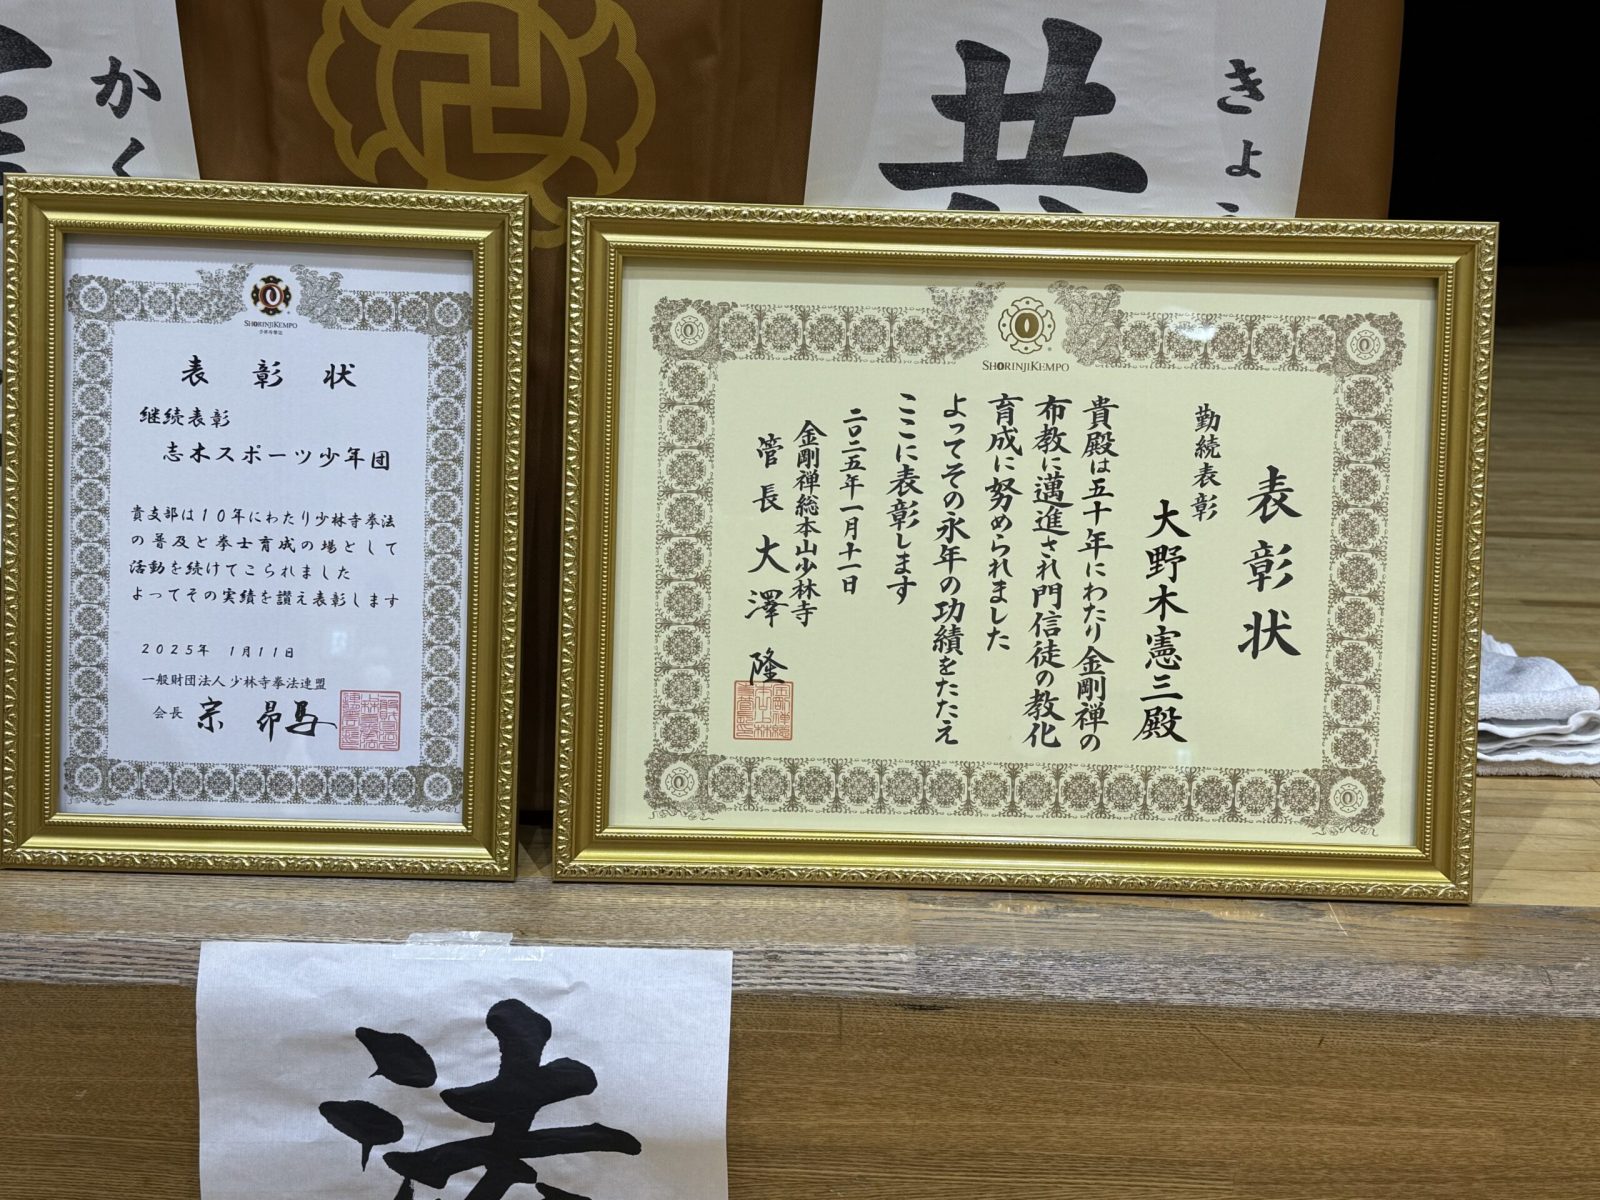 かく
きょ
共
SHORINJIKEMPO
少林寺拳法
表彰状
継続表彰
志木スポーツ少年団
貴支部は10年にわたり少林寺拳法
の普及と拳士育成の場として
活動を続けてこられました
よってその実績を讃え表彰します
2025年 1月11日
一般財団法人 少林寺拳法連盟
会長 宗 昂馬
SHORINJIKEMPO
表彰状
勤続表彰
大野木憲三殿
貴殿は五十年にわたり金剛禅の
布教に邁進され門信徒の教化
育成に努められました
よってその永年の功績をたたえ
ここに表彰します
二〇二五年一月十一日
金剛禅総本山少林寺
管長 大澤 隆
法